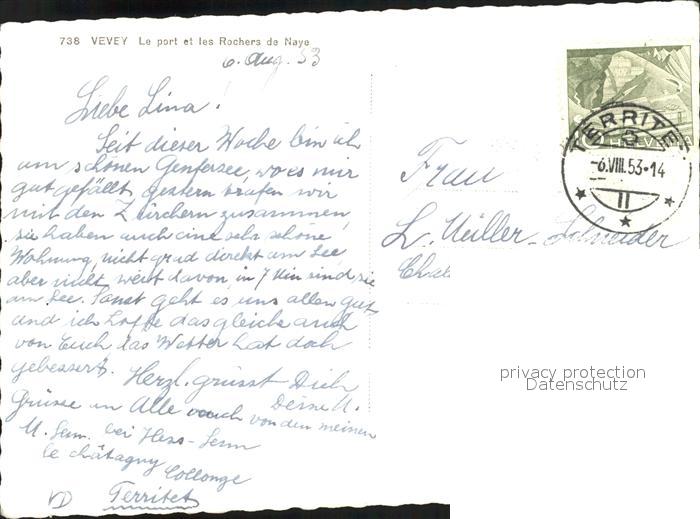 738 VEVEY Le port et les Rochers de Naye
6. Aug. 53
Liebe Lina!
Seit dieser Woche bin ich
am schönen Genfersee, wo es mir
gut gefällt, gestern trafen wir
mit den Zürchern zusammen,
sie haben auch eine sehr schöne
Wohnung, nicht grad direkt am See,
aber nicht weit davon, in 7 Min sind sie
am See. Sonst geht es uns allen gut,
und ich hoffe das gleiche auch
von Euch das Wetter hat doch
gebessert. Herzl. grüsst Dich
Deine M.
Grüsse an Alle auch von den meinen
M. Senn. bei Hess-Senn
le châtagny Collonge
Territet
Frau
L. Müller-Schneider
Chal
TERRITET
-6.VIII.53-14
11
HELVETIA
privacy protection
Datenschutz